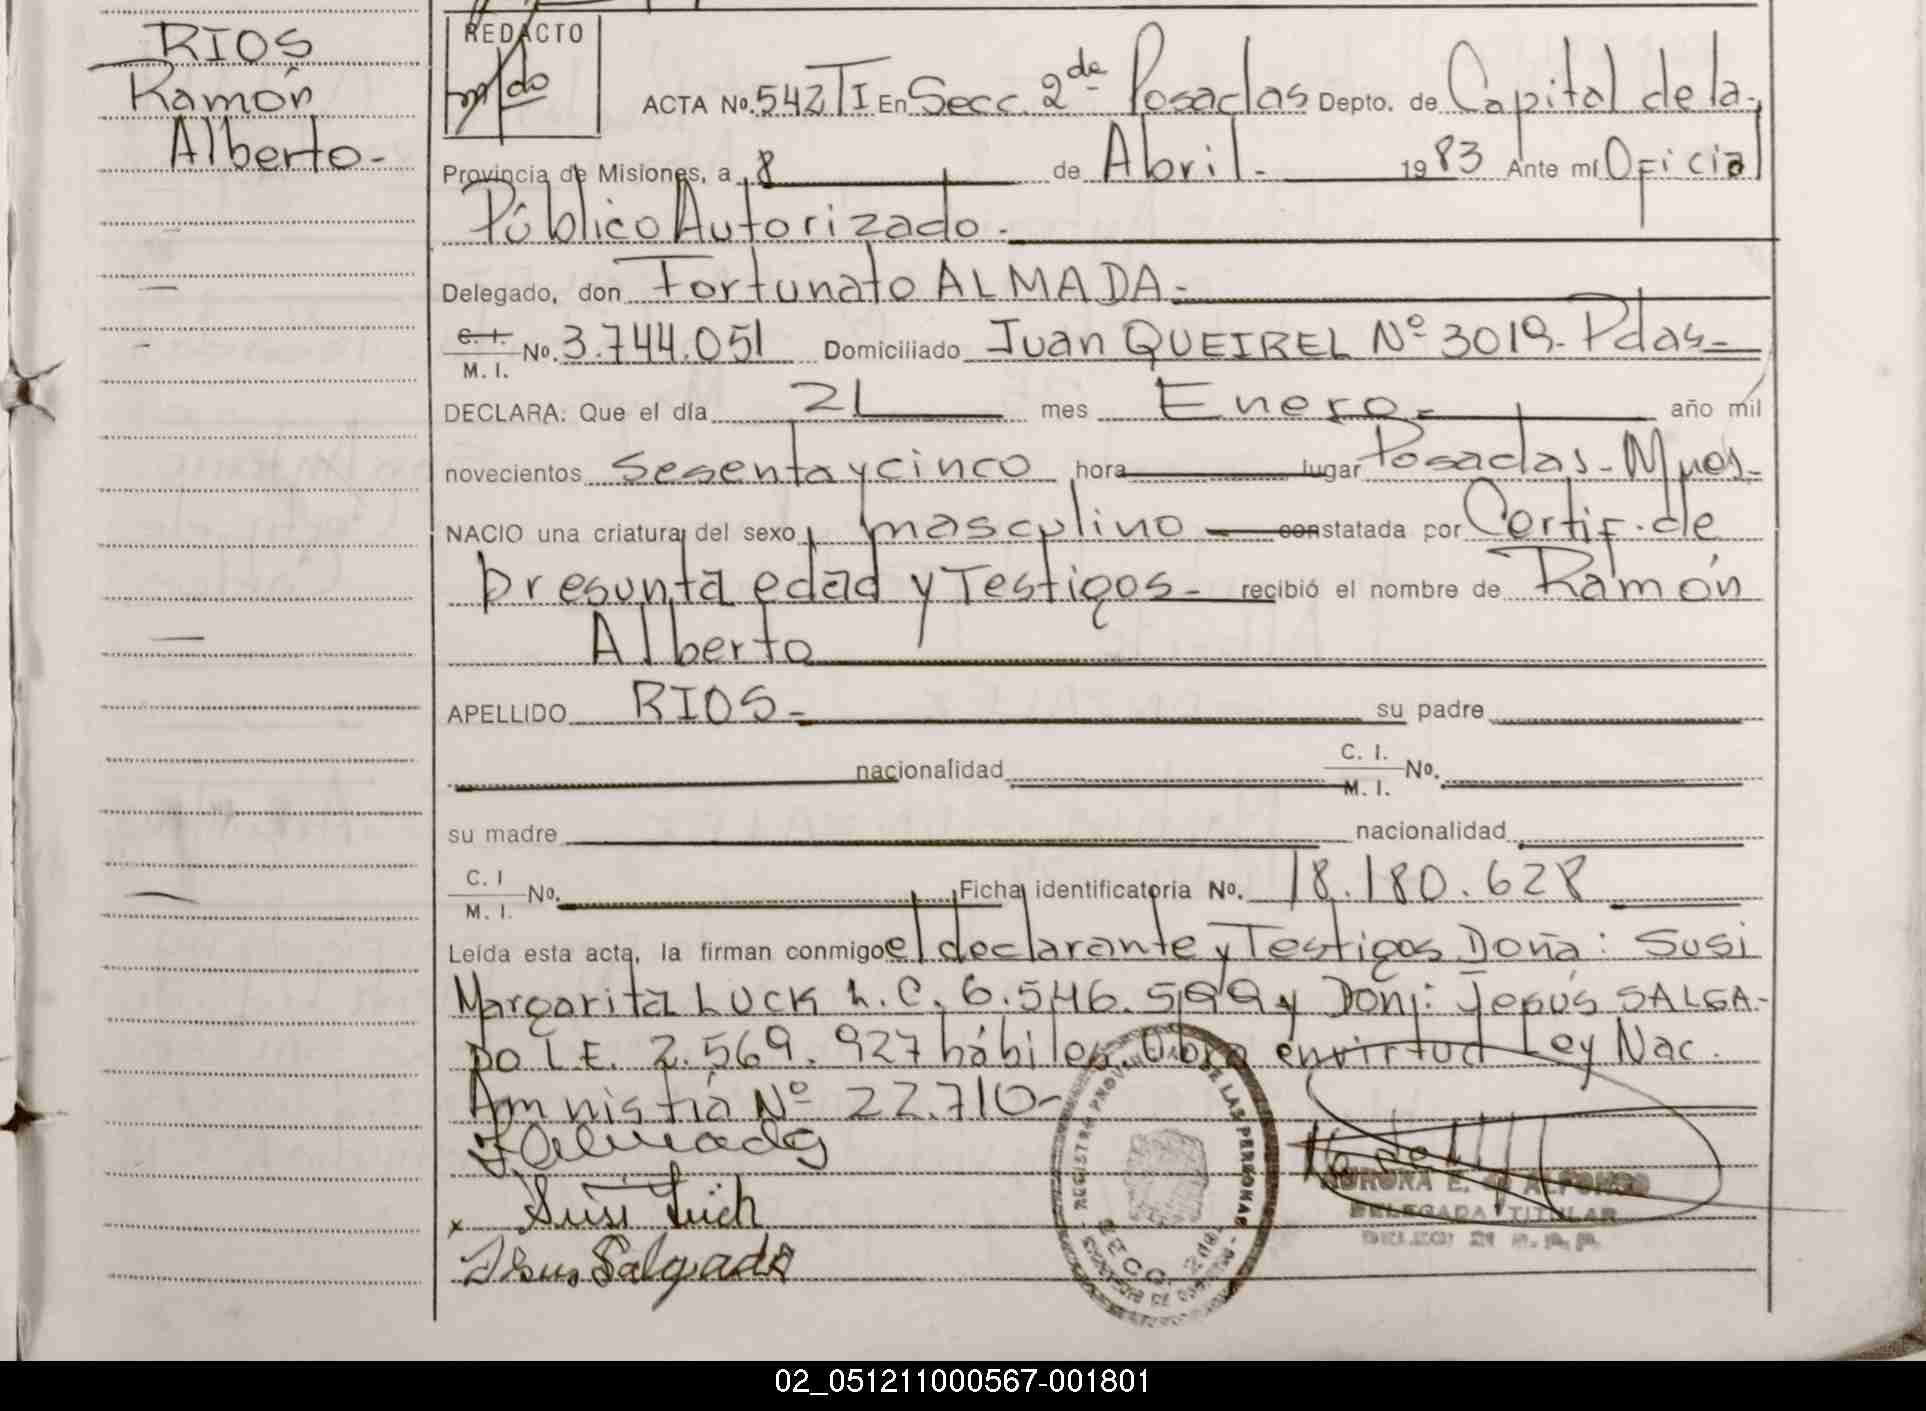 RIOS
Ramón
Alberto-
REDACTO
ACTA No. 542 TI En Secc. 2da Posadas Depto. de Capital de la
Provincia de Misiones, a 8 de Abril.- 1983 Ante mí Oficial
Público Autorizado.-
Delegado, don Fortunato ALMADA.-
C. I. M. I. No. 3.744.051 Domiciliado Juan QUEIREL Nº 3019- Pdas-
DECLARA: Que el día 21 mes Enero- año mil
novecientos Sesenta y cinco hora lugar Posadas-Mnes-
NACIO una criatura del sexo masculino constatada por Certif. de
presunta edad y Testigos- recibió el nombre de Ramón
Alberto
APELLIDO RIOS- su padre
nacionalidad C. I. M. I. No.
su madre nacionalidad
C. I M. I. No. Ficha identificatoria No. 18.180.628
Leída esta acta, la firman conmigo el declarante y Testigos Doña: Susi
Margarita LUCK L.C. 6.546.599 y Don: Jesús SALGA-
DO L.E. 2.569.927 hábiles. Obra en virtud Ley Nac.
Amnistía Nº 22.710-
F. Almada
Susi Lück
Jesus Salgado
REGISTRO PROVINCIAL DE LAS PERSONAS
SECC. 2da
AURORA E. ALFONSO
DELEGADA TITULAR
02_051211000567-001801